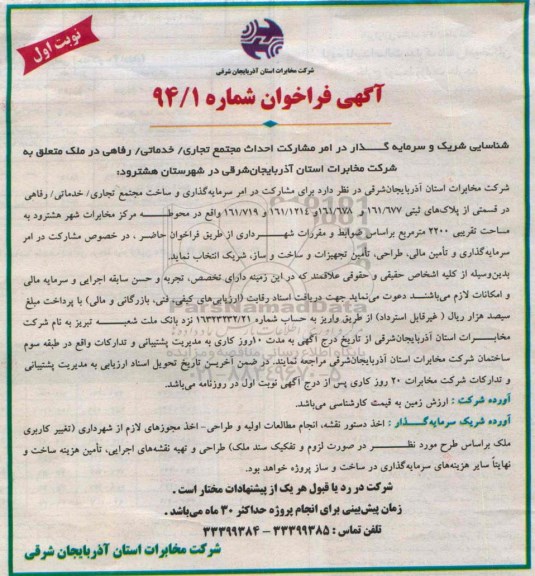 نوبت اول
شرکت مخابرات استان آذربایجان شرقی
آگهی فراخوان شماره ۹۴/۱
شناسایی شریک و سرمایه گذار در امر مشارکت احداث مجتمع تجاری/ خدماتی/ رفاهی در ملک متعلق به
شرکت مخابرات استان آذربایجان‌شرقی در شهرستان هشترود:
شرکت مخابرات استان آذربایجان‌شرقی در نظر دارد برای مشارکت در امر سرمایه‌گذاری و ساخت مجتمع تجاری/ خدماتی/ رفاهی
در قسمتی از پلاک‌های ثبتی ۱۶۱/۶۷۷ و ۱۶۱/۶۷۸ و ۱۶۱/۱۲۱۴ و ۱۶۱/۷۱۹ واقع در محوطه مرکز مخابرات شهر هشترود به
مساحت تقریبی ۲۲۰۰ مترمربع براساس ضوابط و مقررات شهرداری از طریق فراخوان حاضر، در خصوص مشارکت در امر
سرمایه‌گذاری و تأمین مالی، طراحی، تأمین تجهیزات و ساخت و ساز، شریک انتخاب نماید.
بدین‌وسیله از کلیه اشخاص حقیقی و حقوقی علاقمند که در این زمینه دارای تخصص، تجربه و حسن سابقه اجرایی و سرمایه مالی
و امکانات لازم می‌باشند دعوت می‌نماید جهت دریافت اسناد رقابت (ارزیابی‌های کیفی، فنی، بازرگانی و مالی) با پرداخت مبلغ
سیصد هزار ریال ( غیرقابل استرداد) از طریق واریز به حساب شماره نزد بانک ملت شعبه تبریز به نام شرکت
مخابرات استان آذربایجان‌شرقی از تاریخ درج آگهی به مدت ۱۰روز کاری به مدیریت پشتیبانی و تدارکات واقع در طبقه سوم
ساختمان شرکت مخابرات استان آذربایجان‌شرقی مراجعه نمایند. در ضمن آخرین تاریخ تحویل اسناد ارزیابی به مدیریت پشتیبانی
و تدارکات شرکت مخابرات ۲۰ روز کاری پس از درج آگهی نوبت اول در روزنامه می‌باشد.
آورده شرکت : ارزش زمین به قیمت کارشناسی می‌باشد.
آورده شریک سرمایه‌گذار : اخذ دستور نقشه، انجام مطالعات اولیه و طراحی- اخذ مجوزهای لازم از شهرداری (تغییر کاربری
ملک براساس طرح مورد نظر در صورت لزوم و تفکیک سند ملک) طراحی و تهیه نقشه‌های اجرایی، تأمین هزینه ساخت و
نهایتاً سایر هزینه‌های سرمایه‌گذاری در ساخت و ساز پروژه خواهد بود.
شرکت در رد یا قبول هر یک از پیشنهادات مختار است .
زمان پیش‌بینی برای انجام پروژه حداکثر ۳۰ ماه می‌باشد .
تلفن تماس : ۳۳۳۹۹۳۸۵ – ۳۳۳۹۹۳۸۴
شرکت مخابرات استان آذربایجان شرقی
ParsNamadData
پایگاه اطلاع رسانی مناقصه و مزایده